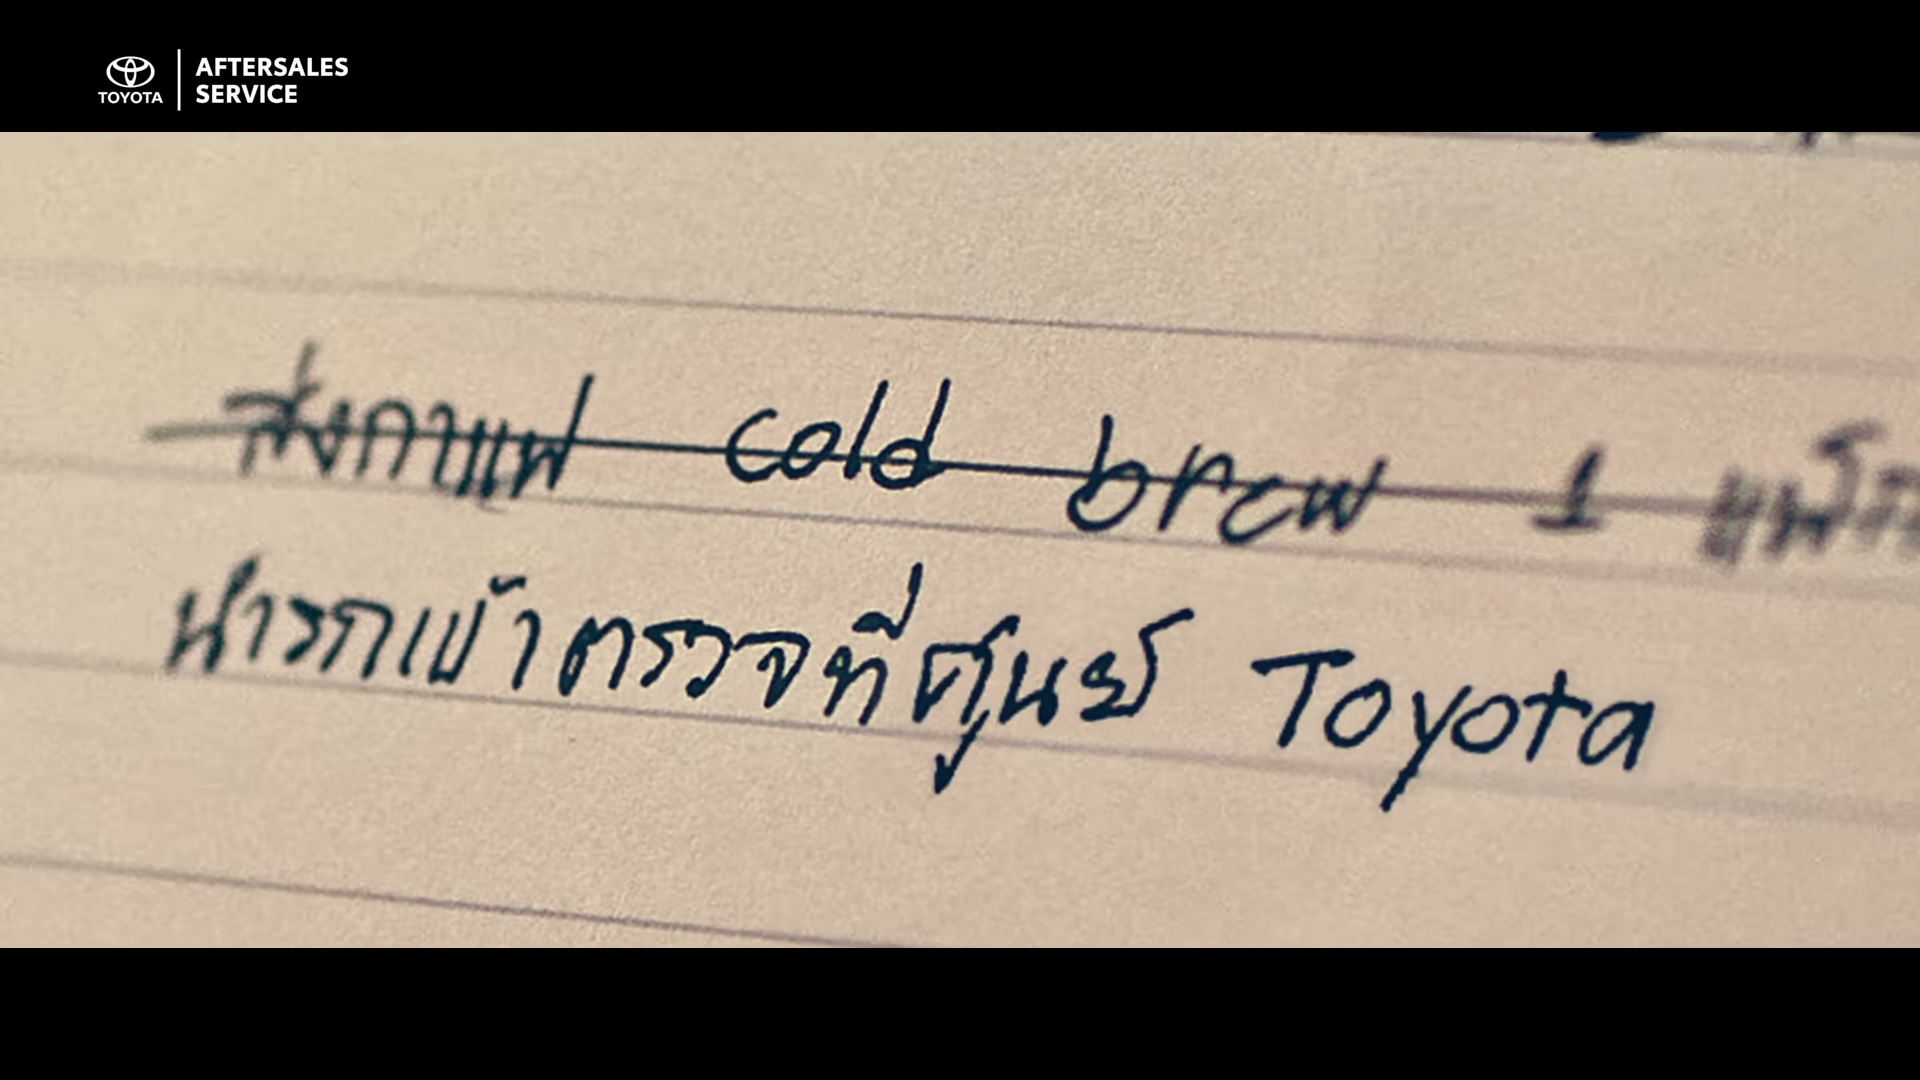 TOYOTA
AFTERSALES
SERVICE
ส่งกาแฟ cold brew 1
นำรถเข้าตรวจที่ศูนย์ Toyota